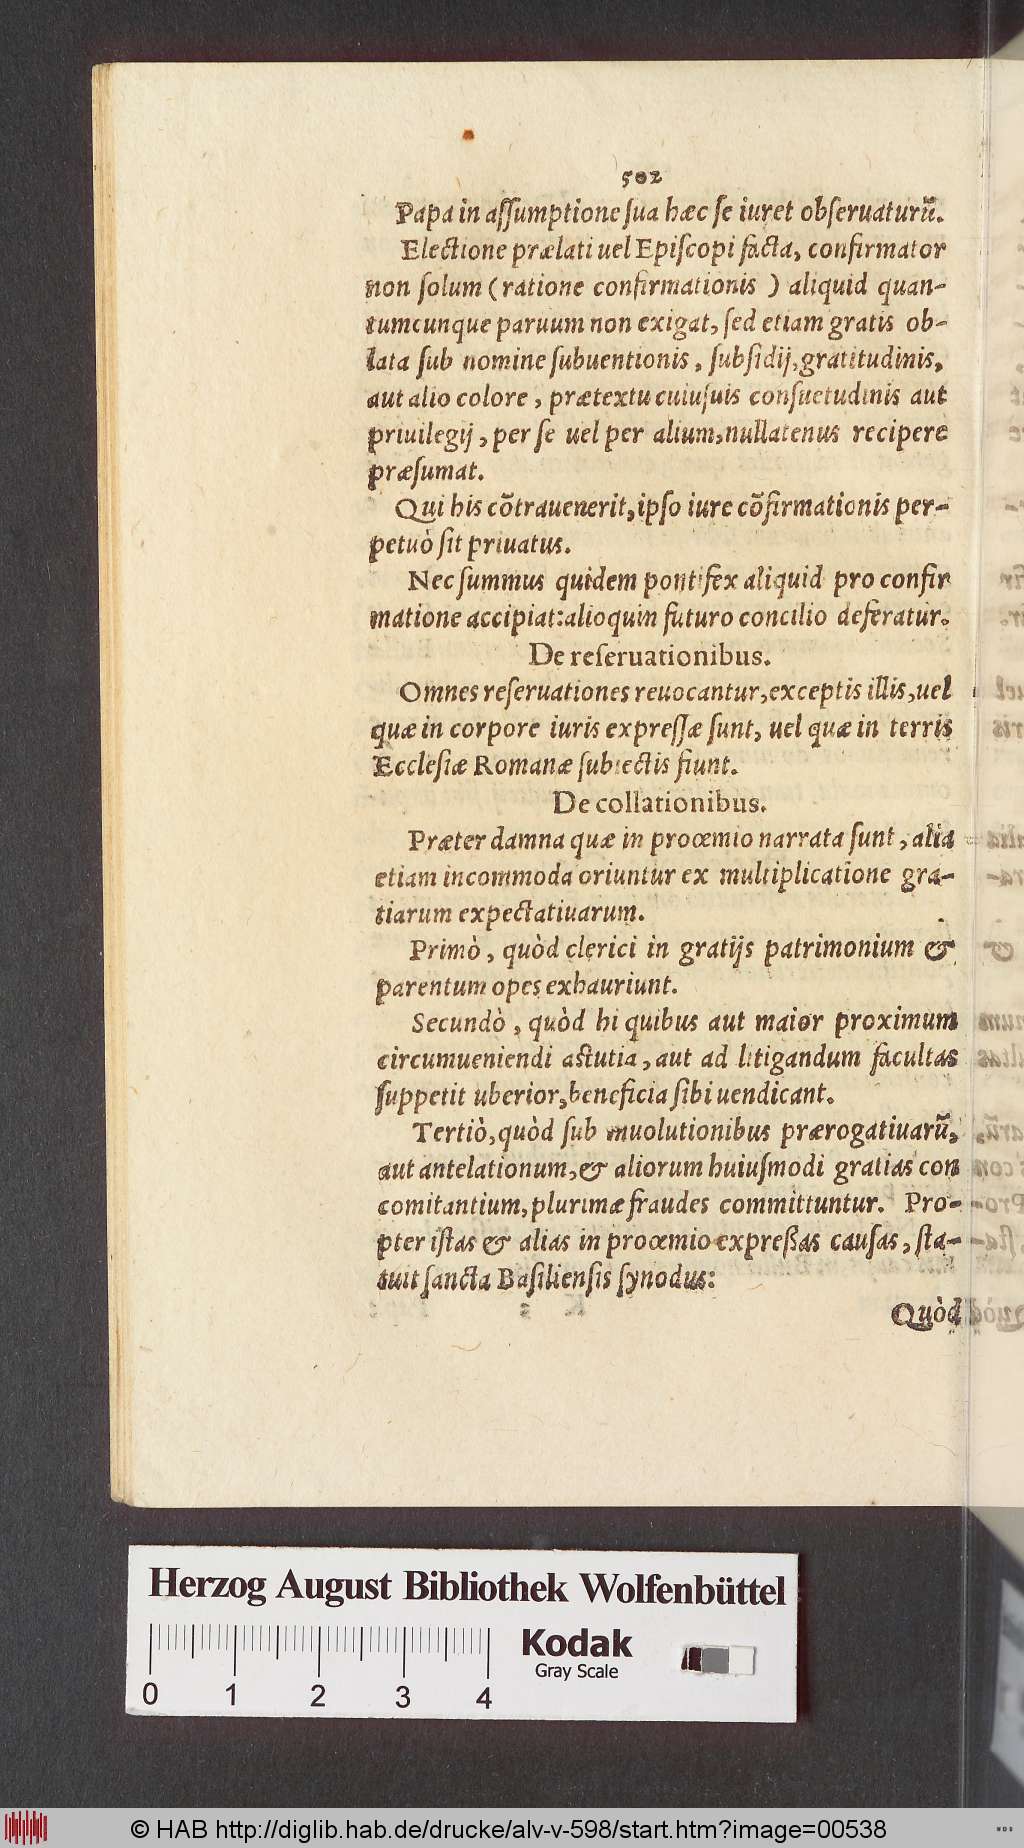 502
Papa in aſſumptione ſua hæc ſe iuret obſeruaturũ.
Electione prælati uel Epiſcopi facta, confirmator
non ſolum (ratione confirmationis) aliquid quan-
tumcunque paruum non exigat, ſed etiam gratis ob-
lata ſub nomine ſubuentionis, ſubſidij, gratitudinis,
aut alio colore, prætextu cuiuſuis conſuetudinis aut
priuilegij, per ſe uel per alium, nullatenus recipere
præſumat.
Qui his cõtrauenerit, ipſo iure cõfirmationis per-
petuò ſit priuatus.
Nec ſummus quidem pontifex aliquid pro confir
matione accipiat: alioquin futuro concilio deferatur.
De reſeruationibus.
Omnes reſeruationes reuocantur, exceptis illis, uel
quæ in corpore iuris expreſſæ ſunt, uel quæ in terris
Eccleſiæ Romanæ ſubiectis fiunt.
De collationibus.
Præter damna quæ in proœmio narrata ſunt, alia
etiam incommoda oriuntur ex multiplicatione gra-
tiarum expectatiuarum.
Primò, quòd clerici in gratijs patrimonium &
parentum opes exhauriunt.
Secundò, quòd hi quibus aut maior proximum
circumueniendi aſtutia, aut ad litigandum facultas
ſuppetit uberior, beneficia ſibi uendicant.
Tertiò, quòd ſub inuolutionibus prærogatiuarũ,
aut antelationum, & aliorum huiuſmodi gratias con
comitantium, plurimæ fraudes committuntur. Pro-
pter iſtas & alias in proœmio expreßas cauſas, ſta-
tuit ſancta Baſilienſis ſynodus:
Quòd
Herzog August Bibliothek Wolfenbüttel
Kodak
Gray Scale
0 1 2 3 4
© HAB http://diglib.hab.de/drucke/alv-v-598/start.htm?image=00538